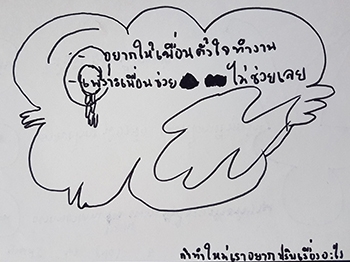 - อยากให้เพื่อนตั้งใจทำงาน
- เพราะเพื่อนช่วย ไม่ช่วยเลย
ถ้าทำใหม่เราอยากปรับเรื่องอะไร